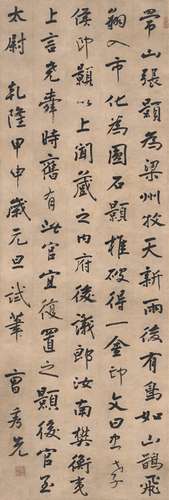 常山張顥為梁州牧天新雨後有鳥如山鵲飛
翔入市化為圓石顥椎破得一金印文曰忠孝
侯印顥以上聞藏之內府後議郎汝南樊衡夷
上言堯舜時舊有此官宜復置之顥後官至
太尉 乾隆甲申歲元旦試筆 曹秀先